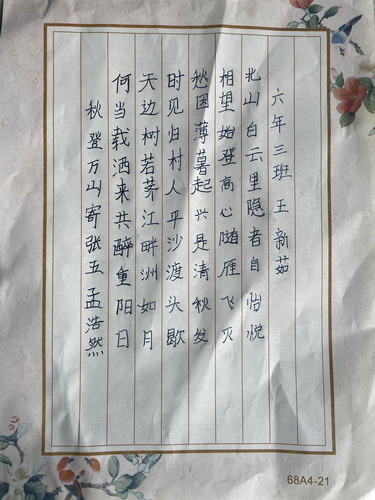 六年三班 王新茹
北山白云里隐者自怡悦
相望始登高心随雁飞灭
愁因薄暮起兴是清秋发
时见归村人平沙渡头歇
天边树若荠江畔洲如月
何当载酒来共醉重阳日
秋登万山寄张五孟浩然
68A4-21